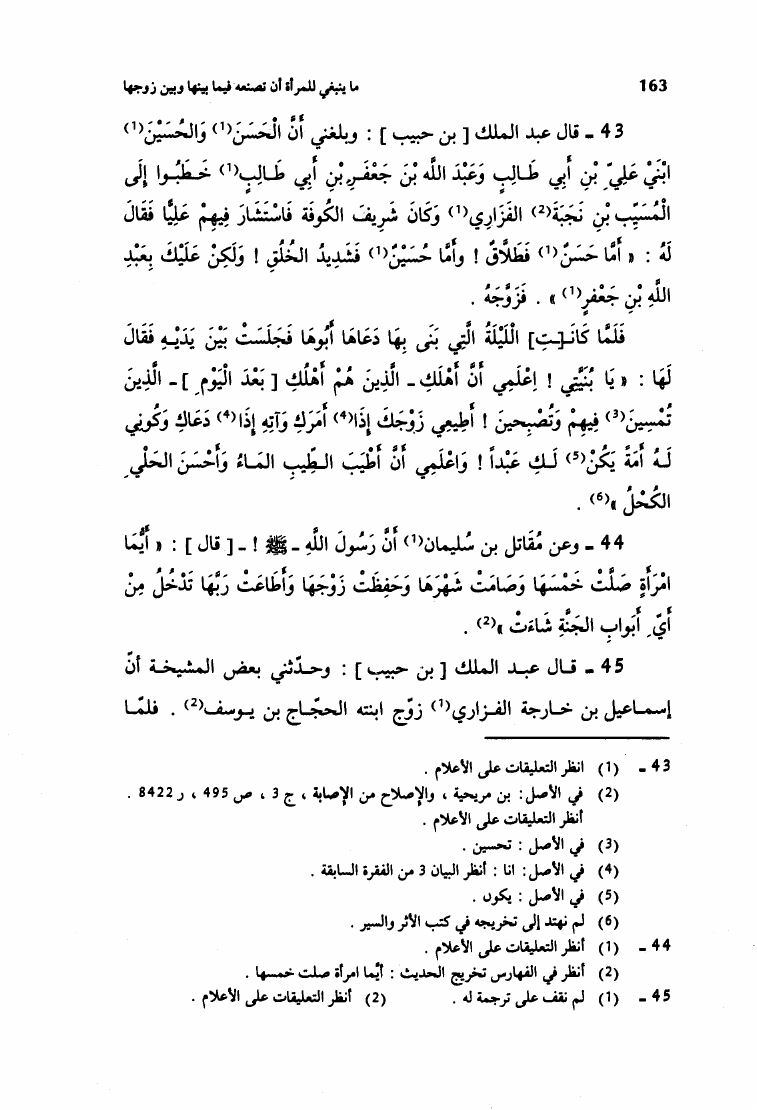 163 ما ينبغي للمرأة أن تصنعه فيما بينها وبين زوجها
43 ـ قال عبد الملك [ بن حبيب ] : وبلغني أَنَّ الْحَسَنَ(1) وَالْحُسَيْنَ(1)
ابْنَيْ عَلِيِّ بْنِ أَبِي طَالِبٍ وَعَبْدَ اللَّهِ بْنَ جَعْفَرِ بْنِ أَبِي طَالِبٍ(1) خَطَبُوا إِلَى
الْمُسَيَّبِ بْنِ نَجَبَةَ(2) الفَزَارِي(1) وَكَانَ شَرِيفَ الكُوفَة فَاسْتَشَارَ فِيهِمْ عَلِيًّا فَقَالَ
لَهُ : « أَمَّا حَسَنٌ(1) فَطَلاَّقٌ ! وأَمَّا حُسَيْنٌ(1) فَشَدِيدُ الخُلُقِ ! وَلَكِنْ عَلَيْكَ بِعَبْدِ
اللَّهِ بْنِ جَعْفَرٍ(1) » . فَزَوَّجَهُ .
فَلَمَّا كَانَـ[ـت] اللَّيْلَةُ الَّتِي بَنَى بِهَا دَعَاهَا أَبُوهَا فَجَلَسَتْ بَيْنَ يَدَيْهِ فَقَالَ
لَهَا : « يَا بُنَيَّتِي ! إِعْلَمِي أَنَّ أَهْلَكِ ـ الَّذِينَ هُمْ أَهْلُكِ [ بَعْدَ الْيَوْمِ ] ـ الَّذِينَ
تُمْسِينَ(3) فِيهِمْ وَتُصْبِحينَ ! أَطِيعِي زَوْجَكِ إِذَا(4) أَمَرَكِ وَآتِهِ إِذَا(4) دَعَاكِ وَكُونِي
لَهُ أَمَةً يَكُنْ(5) لَكِ عَبْداً ! وَاعْلَمِي أَنَّ أَطْيَبَ الطِّيبِ المَاءُ وَأَحْسَنَ الحَلْيِ
الكُحْلُ »(6) .
44 ـ وعن مُقَاتل بن سُليمان(1) أَنَّ رَسُولَ اللَّهِ ـ ﷺ ! ـ [ قال ] : « أَيُّمَا
امْرَأَةٍ صَلَّتْ خَمْسَهَا وَصَامَتْ شَهْرَهَا وَحَفِظَتْ زَوْجَهَا وَأَطَاعَتْ رَبَّهَا تَدْخُلُ مِنْ
أَيِّ أَبْوابِ الجَنَّةِ شَاءَتْ »(2) .
45 ـ قال عبد الملك [ بن حبيب ] : وحدّثني بعض المشيخة أنّ
إسماعيل بن خارجة الفزاري(1) زوّج ابنته الحجّاج بن يوسف(2) . فلمّا
43 ـ (1) انظر التعليقات على الأعلام .
(2) في الأصل : بن مريحية ، والإصلاح من الإصابة ، ج 3 ، ص 495 ، ر 8422 .
أنظر التعليقات على الأعلام .
(3) في الأصل : تحسين .
(4) في الأصل : انا : أنظر البيان 3 من الفقرة السابقة .
(5) في الأصل : يكون .
(6) لم نهتد إلى تخريجه في كتب الأثر والسير .
44 ـ (1) أنظر التعليقات على الأعلام .
(2) أنظر في الفهارس تخريج الحديث : أيُّما امرأة صلت خمسها .
45 ـ (1) لم نقف على ترجمة له . (2) أنظر التعليقات على الأعلام .